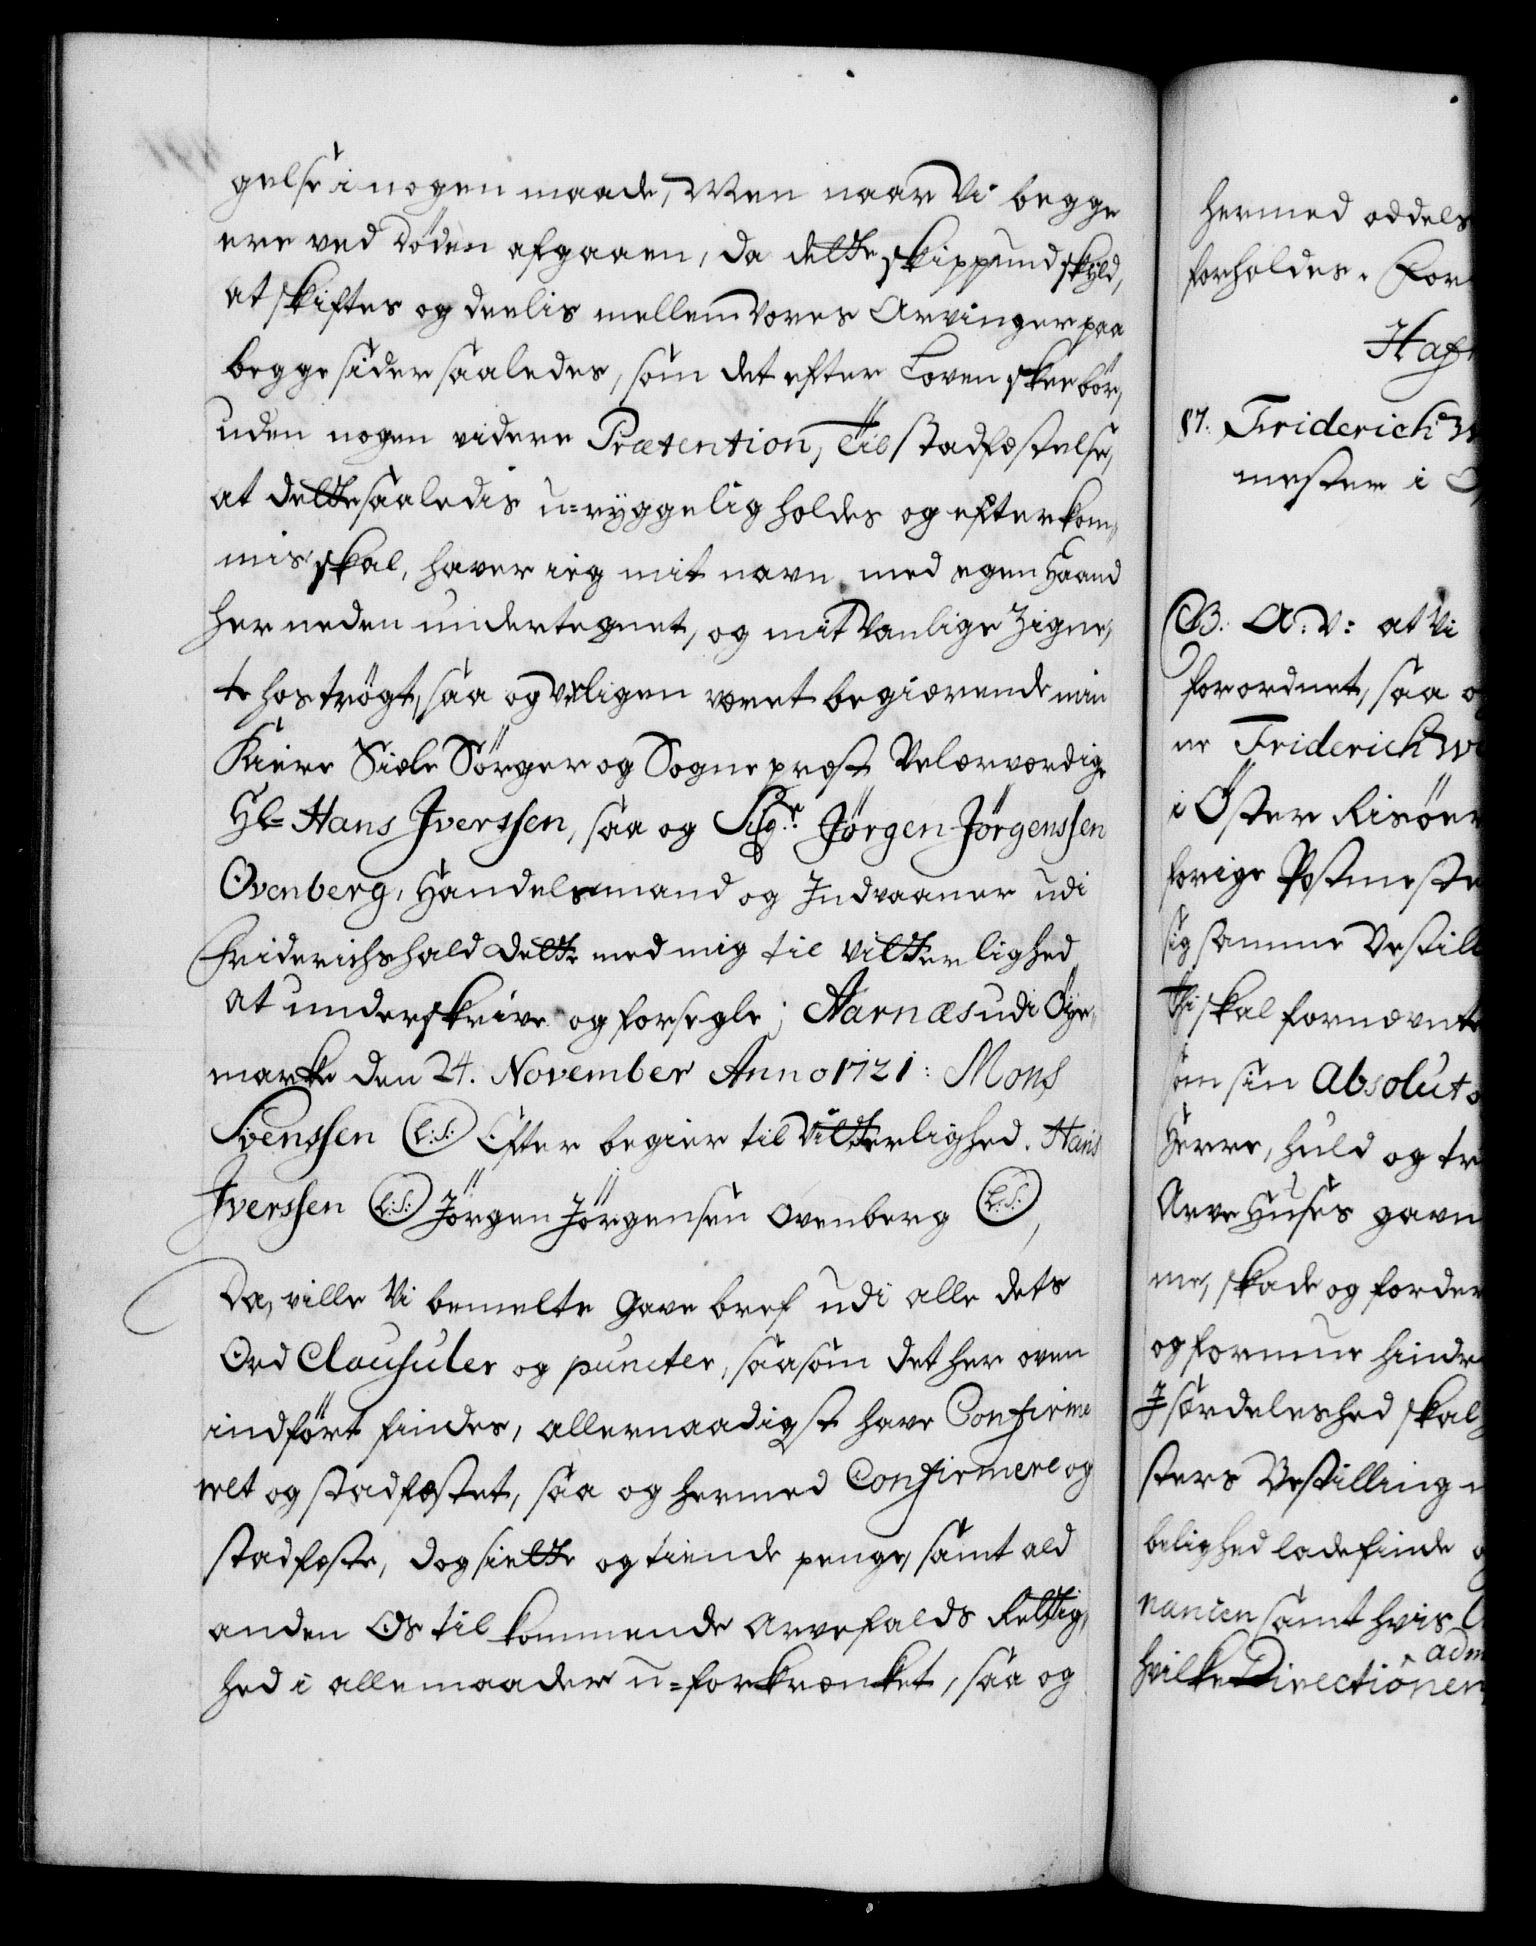 gelse i nogen maade, Men naar Vi begge
ere ved Döden afgaaen, da dette skippund skyld,
at skiftes og deelis mellem vores Arvinger paa
begge sider saaledes, som det efter Loven skee bör,
uden nogen videre Prætention, Til stadfæstelse,
at dette saaledis u-ryggelig holdes og efterkom-
mis skal, haver ieg mit navn med egen Haand
her neden undertegnet, og mit vanlige Zigne-
te hoströgt, saa og venligen været begiærende min
Kiere Siæle Sörger og Sogne præst Velærværdige
Hr Hans Iverssen, saa og Sigr. Jörgen Jörgenssen
Ovenberg, Handelsmand og Indvaaner udi
Friderichshald dette med mig til vitterlighed
at underskrive og forsegle; Aarnæs udi Öye-
marke den 24. November Anno 1721: Mons
Svenssen (L.S.) Efter begier til Vitterlighed. Hans
Iverssen (L.S.) Jörgen Jörgensen Ovenberg (L.S.),
Da, ville Vi bemelte Gave bref udi alle dets
Ord Clausuler og puncter, saasom det her oven
indfört findes, allernaadigst have Confirme
ret og stadfæstet, saa og hermed Confirmere og
stadfæste, dog siette og tiende penge, samt ald
anden Os tilkommende Arvefalds Rettig-
hed i alle maader u-forkrænket, saa og
hermed oddels
forholdes. For
Haf
87. Friderich W
mester i
C3. A: V: at Vi
forordnet, saa o
ne Friderich We
i Öster Risöer
forige Postmeste
sig samme Bestill
Thi skal fornævnte
som sin Absolut
Herre, huld og tr
Arve Huses gavn
me, skade og forder
og formue hindr
Isærdeleshed skal
sters Bestilling
belighed lade finde
nancen samt hvis
adm
hvilke Directionen